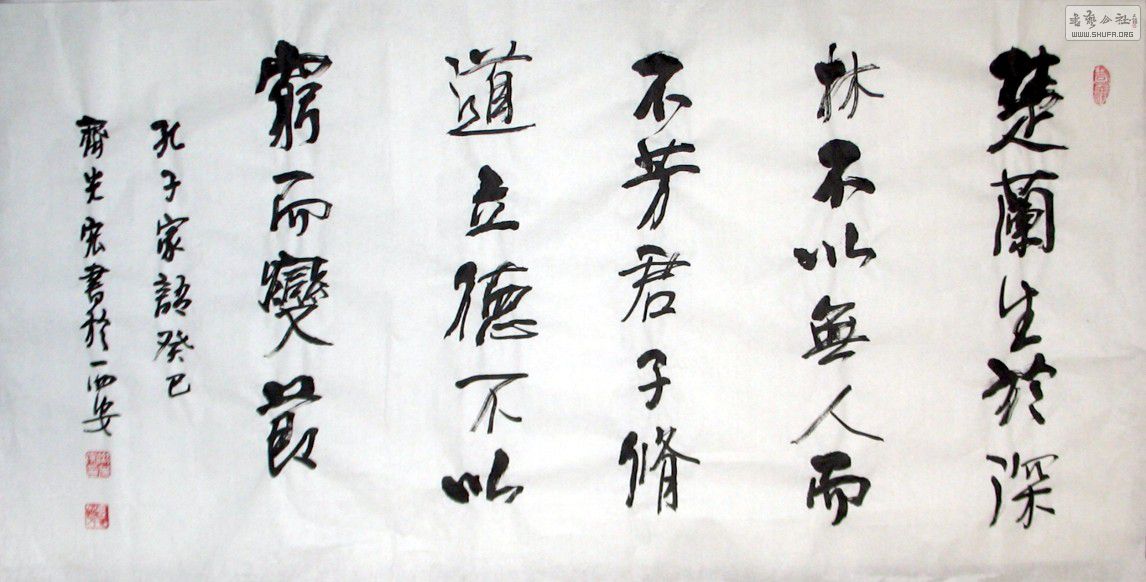 楚蘭生於深
林不以無人而
不芳君子脩
道立德不以
窮而變節
孔子家語癸巳
齊光宏書於西安
書藝公社
WWW.SHUFA.ORG